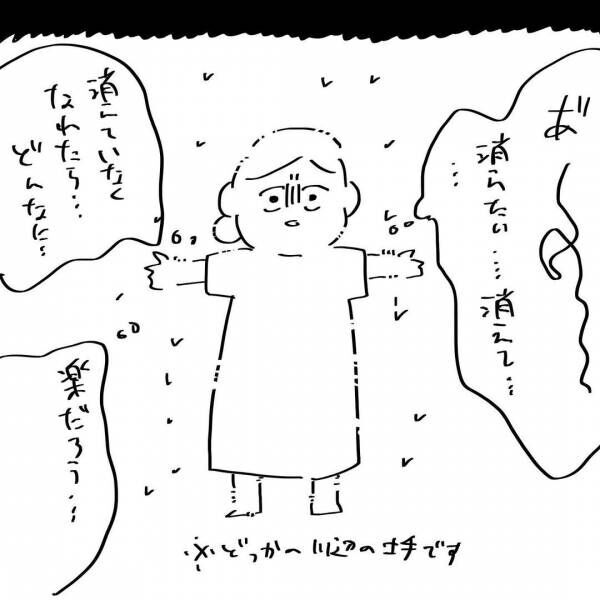 あ゛
消えたい…‥消えて…
…
消えていなく
なれたら…
どんなに…
楽だろう…
※どっかの川辺の土手です